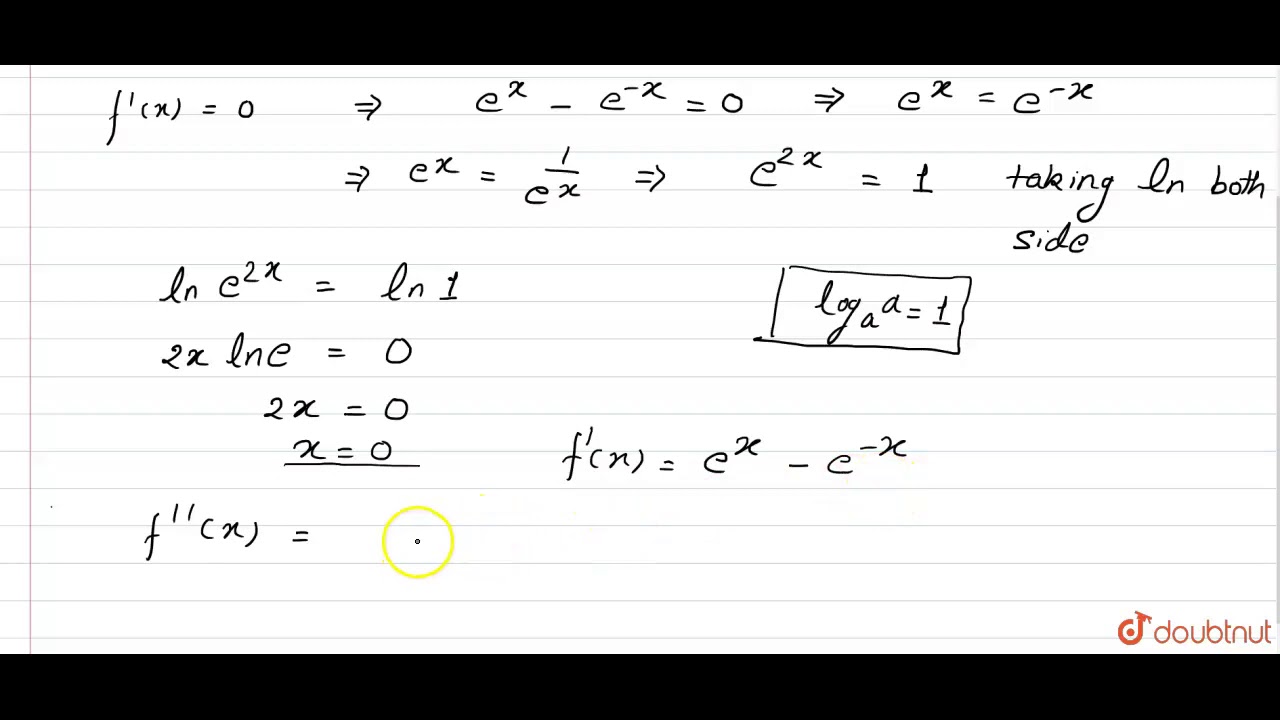 f'(x) = 0 ⇒ e^x - e^-x = 0 ⇒ e^x = e^-x
⇒ e^x = 1/e^x ⇒ e^2x = 1 taking ln both
side
ln e^2x = ln 1
log_a a = 1
2x ln e = 0
2x = 0
x = 0
f'(x) = e^x - e^-x
f''(x) =
doubtnut